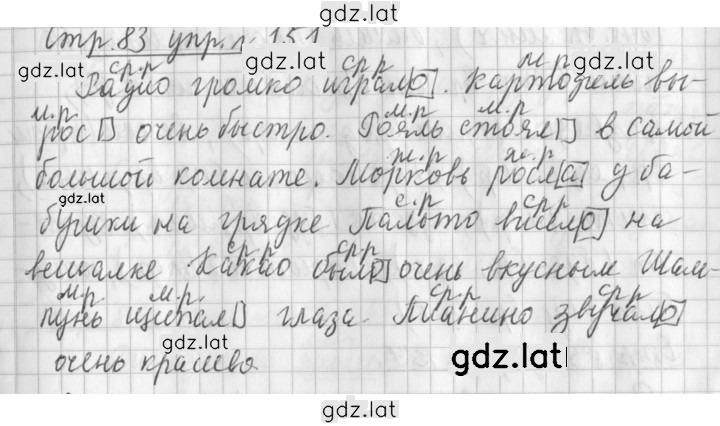 gdz.lat
Стр.83 упр. 151
gdz.lat ср.р ср.р gdz.lat м.р
Радио громко играло. Картофель вы-
м.р м.р м.р
рос очень быстро. Рояль стоял в самой
ж.р ж.р
большой комнате. Морковь росла у ба-
gdz.lat с.р ср.р
бушки на грядке Пальто висело на
ср.р ср.р
вешалке Какао было очень вкусным Шам-
м.р м.р. ср.р ср.р
пунь щипал глаза. Пианино звучало
gdz.lat gdz.lat
очень красиво
gdz.lat